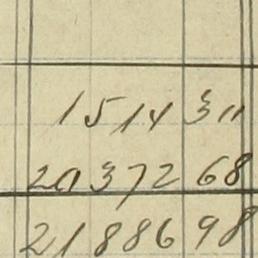 151430
2037268
2188698